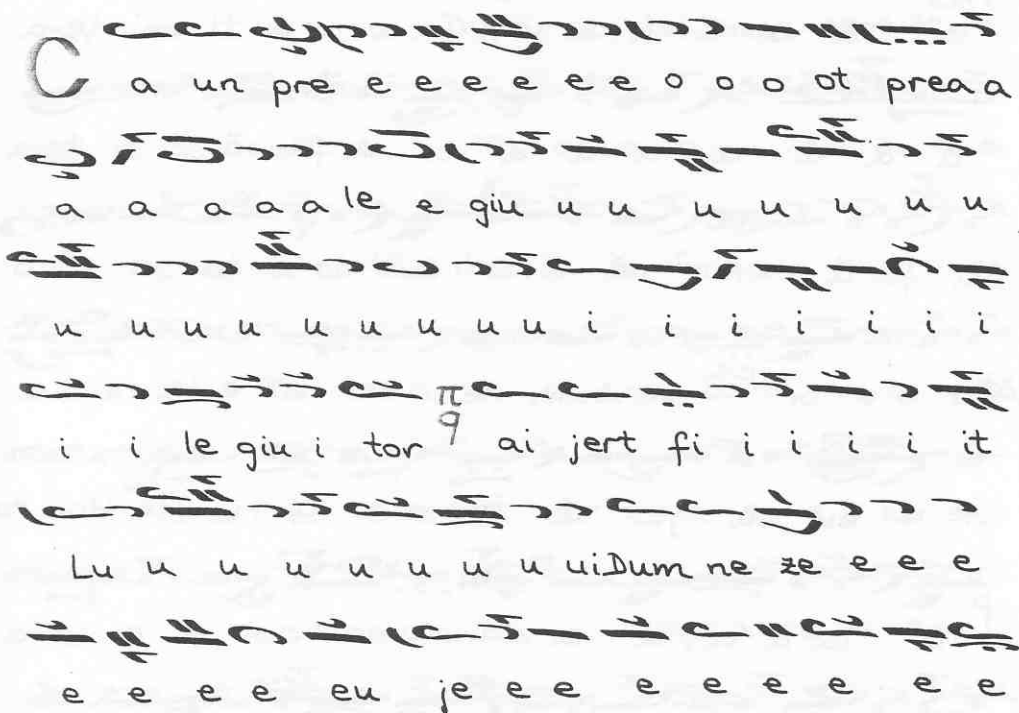 Ca un pre e e e e e e o o o ot prea a
a a a a a le e giu u u u u u u u
u u u u u u u u u i i i i i i i
i i le giu i tor π q ai jert fi i i i i it
Lu u u u u u u u ui Dum ne ze e e e
e e e e eu je e e e e e e e e